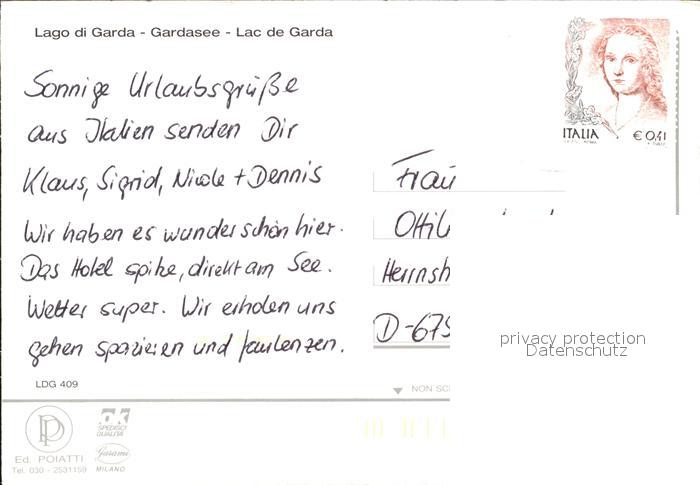 Lago di Garda - Gardasee - Lac de Garda
Sonnige Urlaubsgrüße
aus Italien senden Dir
Klaus, Sigrid, Nicole + Dennis
Wir haben es wunderschön hier.
Das Hotel spitze, direkt am See.
Wetter super. Wir erholen uns
gehen spazieren und faulenzen.
ITALIA € 0,41
Frau
Ottil
Herrnsh
D-675
privacy protection
Datenschutz
LDG 409
NON SC
Ed. POIATTI
Tel. 030 - 2531159
SPEDISCI
QUALITÀ
Garami
MILANO